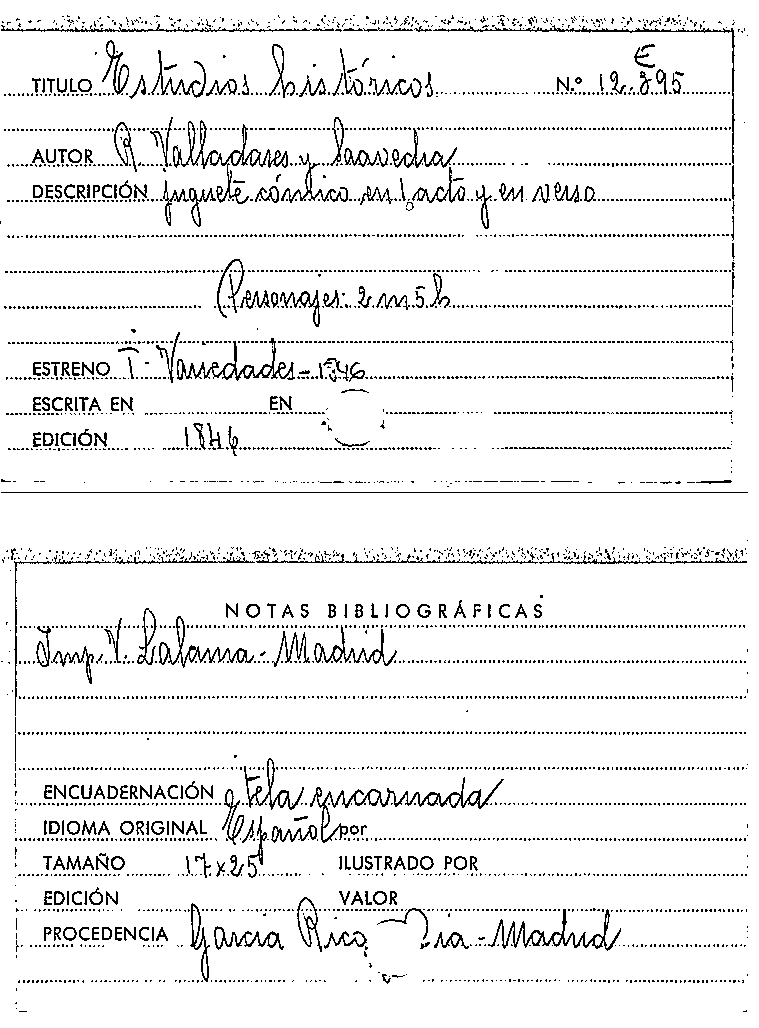 E
TITULO Estudios históricos N.º 12.895
AUTOR R. Valladares y Saavedra
DESCRIPCIÓN juguete cómico en 1 acto y en verso
Personajes: 2 m 5 h
ESTRENO T. Variedades - 1846
ESCRITA EN EN
EDICIÓN 1846
NOTAS BIBLIOGRÁFICAS
Imp. V. Lalama - Madrid
ENCUADERNACIÓN tela encarnada
IDIOMA ORIGINAL Español por
TAMAÑO 17 x 25 ILUSTRADO POR
EDICIÓN VALOR
PROCEDENCIA García Rico Madrid